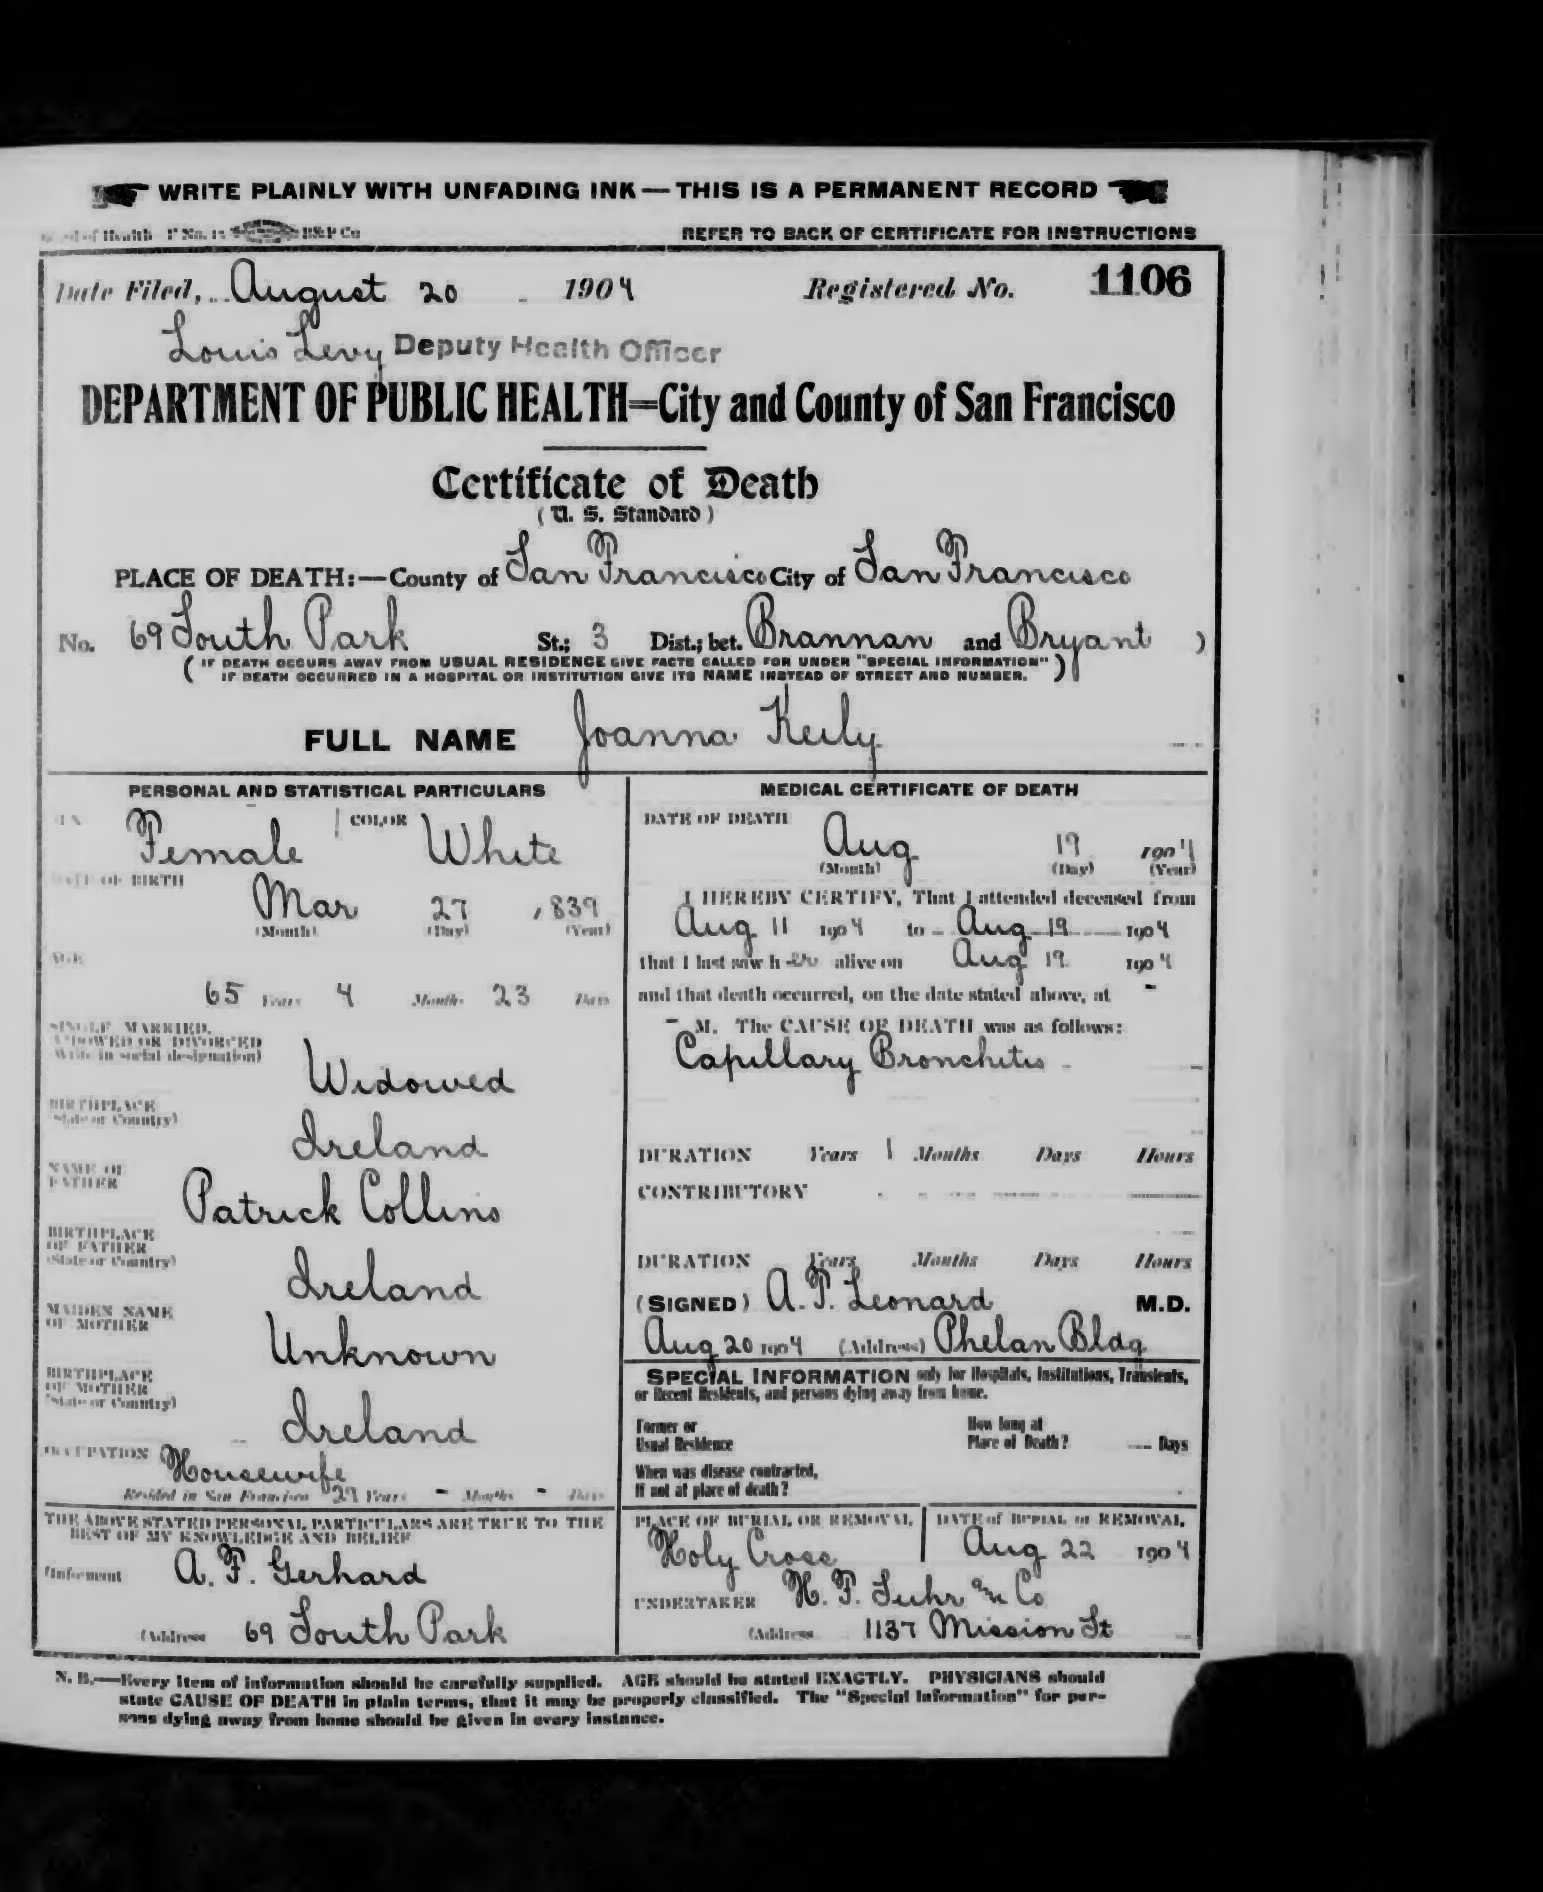 WRITE PLAINLY WITH UNFADING INK — THIS IS A PERMANENT RECORD
of Health B&P Co
REFER TO BACK OF CERTIFICATE FOR INSTRUCTIONS
Date Filed, August 20 1904 Registered No. 1106
Louis Levy Deputy Health Officer
DEPARTMENT OF PUBLIC HEALTH=City and County of San Francisco
Certificate of Death
(U. S. Standard)
PLACE OF DEATH:—County of San Francisco City of San Francisco
No. 69 South Park St.; 3 Dist.; bet. Brannan and Bryant )
( IF DEATH OCCURS AWAY FROM USUAL RESIDENCE GIVE FACTS CALLED FOR UNDER "SPECIAL INFORMATION" )
IF DEATH OCCURRED IN A HOSPITAL OR INSTITUTION GIVE ITS NAME INSTEAD OF STREET AND NUMBER.
FULL NAME Joanna Keily
PERSONAL AND STATISTICAL PARTICULARS
Female COLOR White
DATE OF BIRTH
Mar 27 1839
(Month) (Day) (Year)
AGE
65 Years 4 Months 23 Days
SINGLE, MARRIED,
WIDOWED OR DIVORCED
(Write in social designation)
Widowed
BIRTHPLACE
(State or Country)
Ireland
NAME OF
FATHER
Patrick Collins
BIRTHPLACE
OF FATHER
(State or Country)
Ireland
MAIDEN NAME
OF MOTHER
Unknown
BIRTHPLACE
OF MOTHER
(State or Country)
Ireland
OCCUPATION Housewife
Resided in San Francisco 29 Years - Months - Days
THE ABOVE STATED PERSONAL PARTICULARS ARE TRUE TO THE
BEST OF MY KNOWLEDGE AND BELIEF
(Informant A. F. Gerhard
(Address 69 South Park
MEDICAL CERTIFICATE OF DEATH
DATE OF DEATH
Aug 19 1904
(Month) (Day) (Year)
I HEREBY CERTIFY, That I attended deceased from
Aug 11 1904 to Aug 19 1904
that I last saw h er alive on Aug 19 1904
and that death occurred, on the date stated above, at -
- M. The CAUSE OF DEATH was as follows:
Capillary Bronchitis
DURATION Years 1 Months Days Hours
CONTRIBUTORY
DURATION Years Months Days Hours
(SIGNED) A. F. Leonard M.D.
Aug 20 1904 (Address) Phelan Bldg
SPECIAL INFORMATION only for Hospitals, Institutions, Transients,
or Recent Residents, and persons dying away from home.
Former or
Usual Residence
How long at
Place of Death? Days
When was disease contracted,
If not at place of death?
PLACE OF BURIAL OR REMOVAL
Holy Cross
DATE of BURIAL or REMOVAL
Aug 22 1904
UNDERTAKER H. F. Suhr & Co
(Address 1137 Mission St
N. B.—Every item of information should be carefully supplied. AGE should be stated EXACTLY. PHYSICIANS should
state CAUSE OF DEATH in plain terms, that it may be properly classified. The "Special Information" for per-
sons dying away from home should be given in every instance.